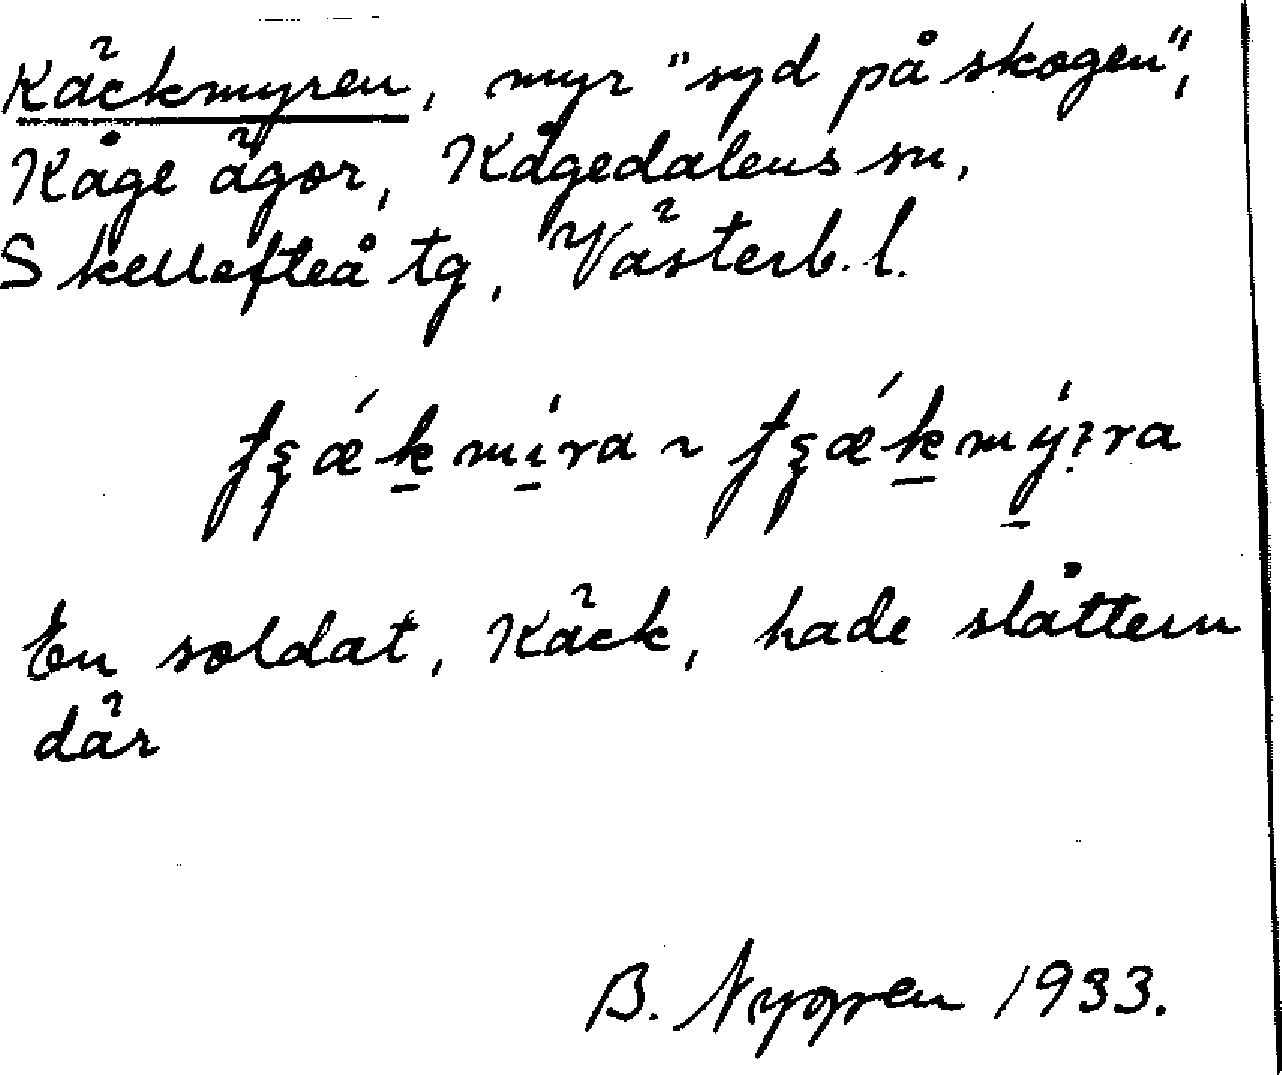 Käckmyren, myr "syd på skogen",
Kåge ägor, Kågedalens sn,
Skellefteå tg, Västerb. l.
En soldat, Käck, hade slåttern
där
B. Nygren 1933.